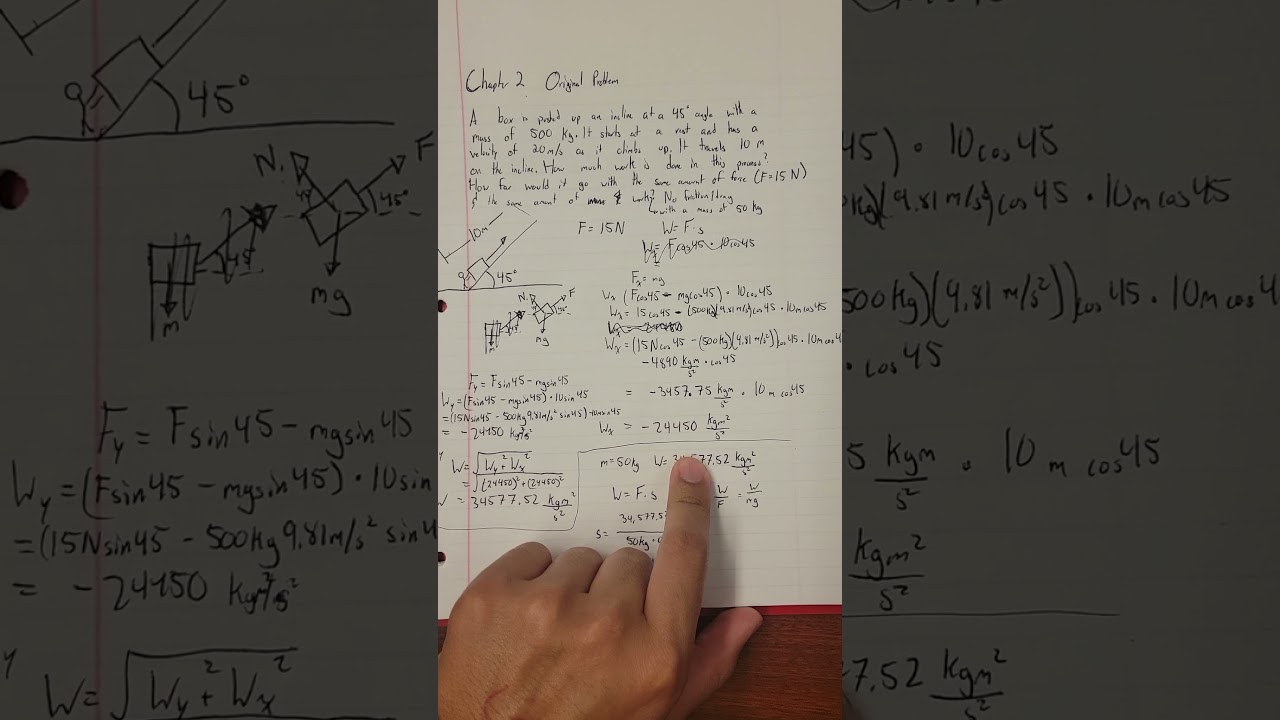 Chapter 2 Original Problem
A box is pushed up an incline at a 45° angle with a
mass of 500 kg. It starts at a rest and has a
velocity of 20 m/s as it climbs up. It travels 10 m
on the incline. How much work is done in this process?
How far would it go with the same amount of force (F=15 N)
& the same amount of work? No friction/drag
with a mass of 50 kg
F = 15N W = F·s
10m
45°
F_x = mg
W_x (Fcos45 - mgcos45) · 10cos45
W_x = 15cos45 - (500kg)(9.81 m/s²)cos45 · 10m cos45
W_x = (15N cos45 - (500kg)(9.81 m/s²))cos45 · 10m cos45
-4890 kgm/s² · cos45
= -3457.75 kgm/s² · 10m cos45
W_x = -24450 kgm²/s²
N F
45°
mg
m
F_y = Fsin45 - mgsin45
W_y = (Fsin45 - mgsin45) · 10sin45
= (15Nsin45 - 500kg 9.81m/s² sin45) · 10m sin45
= -24450
W = √W_y² + W_x²
= √(24450)² + (24450)²
W = 34577.52 kgm²/s²
m = 50kg W = 34577.52 kgm²/s²
W = F·s W/F = W/mg
s = 34,577.5
50kg ·